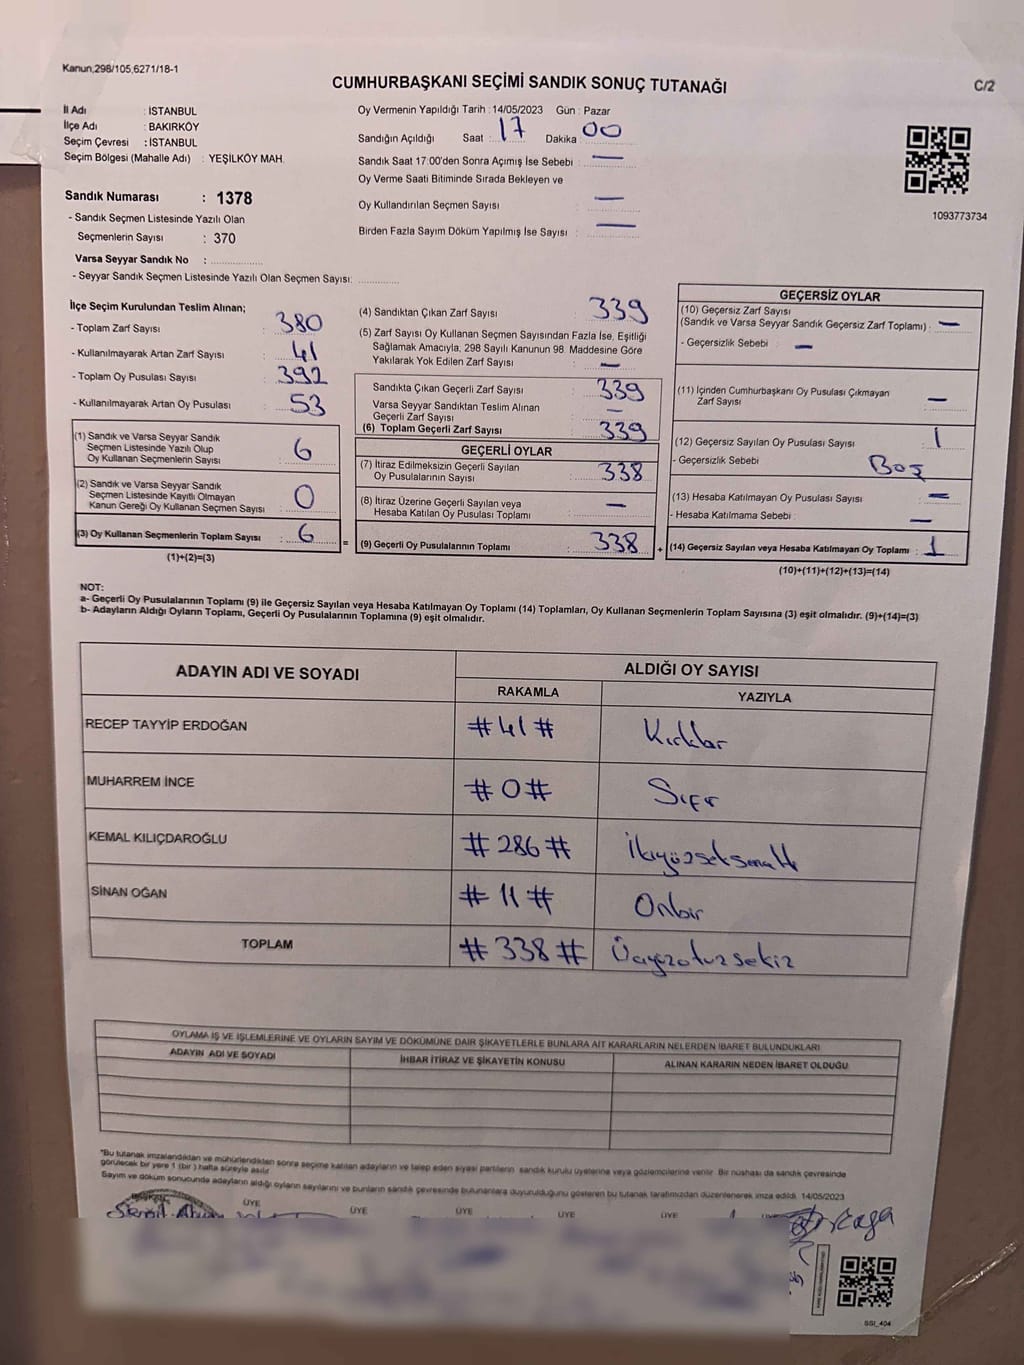 Kanun,298/105,6271/18-1
CUMHURBAŞKANI SEÇİMİ SANDIK SONUÇ TUTANAĞI
C/2
İl Adı : İSTANBUL
İlçe Adı : BAKIRKÖY
Seçim Çevresi : İSTANBUL
Seçim Bölgesi (Mahalle Adı) : YEŞİLKÖY MAH.
Sandık Numarası : 1378
- Sandık Seçmen Listesinde Yazılı Olan
Seçmenlerin Sayısı : 370
Varsa Seyyar Sandık No :
- Seyyar Sandık Seçmen Listesinde Yazılı Olan Seçmen Sayısı:
Oy Vermenin Yapıldığı Tarih : 14/05/2023 Gün : Pazar
Sandığın Açıldığı Saat : 17 Dakika : 00
Sandık Saat 17:00'den Sonra Açımış İse Sebebi : —
Oy Verme Saati Bitiminde Sırada Bekleyen ve
Oy Kullandırılan Seçmen Sayısı : —
Birden Fazla Sayım Döküm Yapılmış İse Sayısı : —
1093773734
İlçe Seçim Kurulundan Teslim Alınan;
- Toplam Zarf Sayısı : 380
- Kullanılmayarak Artan Zarf Sayısı : 41
- Toplam Oy Pusulası Sayısı : 392
- Kullanılmayarak Artan Oy Pusulası : 53
(1) Sandık ve Varsa Seyyar Sandık
Seçmen Listesinde Yazılı Olup
Oy Kullanan Seçmenlerin Sayısı : 6
(2) Sandık ve Varsa Seyyar Sandık
Seçmen Listesinde Kayıtlı Olmayan
Kanun Gereği Oy Kullanan Seçmen Sayısı : 0
(3) Oy Kullanan Seçmenlerin Toplam Sayısı : 6
(1)+(2)=(3)
=
(4) Sandıktan Çıkan Zarf Sayısı : 339
(5) Zarf Sayısı Oy Kullanan Seçmen Sayısından Fazla İse, Eşitliği
Sağlamak Amacıyla, 298 Sayılı Kanunun 98. Maddesine Göre
Yakılarak Yok Edilen Zarf Sayısı : —
Sandıkta Çıkan Geçerli Zarf Sayısı : 339
Varsa Seyyar Sandıktan Teslim Alınan
Geçerli Zarf Sayısı : —
(6) Toplam Geçerli Zarf Sayısı : 339
GEÇERLİ OYLAR
(7) İtiraz Edilmeksizin Geçerli Sayılan
Oy Pusulalarının Sayısı : 338
(8) İtiraz Üzerine Geçerli Sayılan veya
Hesaba Katılan Oy Pusulası Toplamı : —
(9) Geçerli Oy Pusulalarının Toplamı : 338
+
GEÇERSİZ OYLAR
(10) Geçersiz Zarf Sayısı
(Sandık ve Varsa Seyyar Sandık Geçersiz Zarf Toplamı) : —
- Geçersizlik Sebebi : —
(11) İçinden Cumhurbaşkanı Oy Pusulası Çıkmayan
Zarf Sayısı : —
(12) Geçersiz Sayılan Oy Pusulası Sayısı : 1
- Geçersizlik Sebebi : Boş
(13) Hesaba Katılmayan Oy Pusulası Sayısı : —
- Hesaba Katılmama Sebebi : —
(14) Geçersiz Sayılan veya Hesaba Katılmayan Oy Toplamı : 1
(10)+(11)+(12)+(13)=(14)
NOT:
a- Geçerli Oy Pusulalarının Toplamı (9) ile Geçersiz Sayılan veya Hesaba Katılmayan Oy Toplamı (14) Toplamları, Oy Kullanan Seçmenlerin Toplam Sayısına (3) eşit olmalıdır. (9)+(14)=(3)
b- Adayların Aldığı Oyların Toplamı, Geçerli Oy Pusulalarının Toplamına (9) eşit olmalıdır.
ADAYIN ADI VE SOYADI
ALDIĞI OY SAYISI
RAKAMLA YAZIYLA
RECEP TAYYİP ERDOĞAN #41# Kırkbir
MUHARREM İNCE #0# Sıfır
KEMAL KILIÇDAROĞLU #286# İkiyüzseksenaltı
SİNAN OĞAN #11# Onbir
TOPLAM #338# Üçyüzotuzsekiz
OYLAMA İŞ VE İŞLEMLERİNE VE OYLARIN SAYIM VE DÖKÜMÜNE DAİR ŞİKAYETLERLE BUNLARA AİT KARARLARIN NELERDEN İBARET BULUNDUKLARI
ADAYIN ADI VE SOYADI İHBAR İTİRAZ VE ŞİKAYETİN KONUSU ALINAN KARARIN NEDEN İBARET OLDUĞU
*Bu tutanak imzalandıktan ve mühürlendikten sonra seçime katılan adayların ve talep eden siyasi partilerin sandık kurulu üyelerine veya gözlemcilerine verilir. Bir nüshası da sandık çevresinde
görülecek bir yere 1 (bir) hafta süreyle asılır.
Sayım ve döküm sonucunda adayların aldığı oyların sayılarını ve bunların sandık çevresinde bulunanlara duyurulduğunu gösteren bu tutanak tarafımızdan düzenlenerek imza edildi. 14/05/2023
ÜYE ÜYE ÜYE ÜYE ÜYE
SSI_404